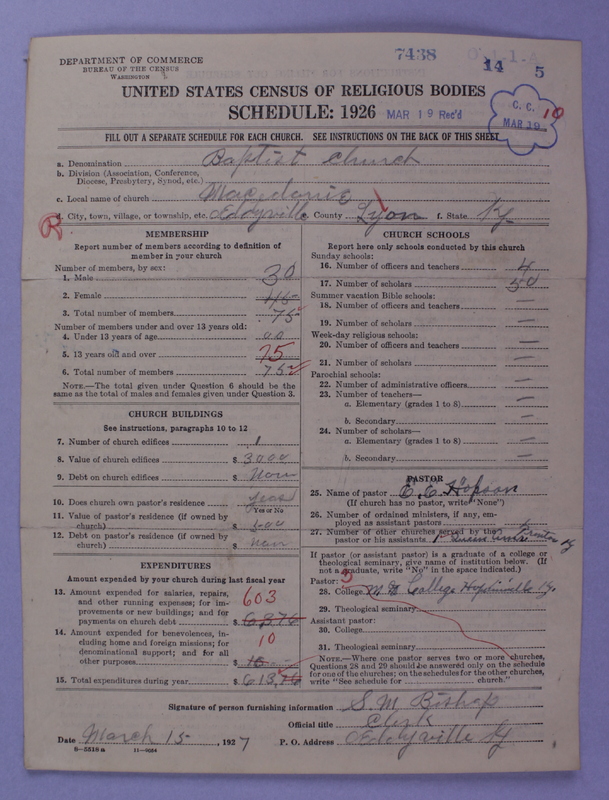 7438
14 5
DEPARTMENT OF COMMERCE
BUREAU OF THE CENSUS
WASHINGTON
UNITED STATES CENSUS OF RELIGIOUS BODIES
SCHEDULE: 1926 MAR 19 Rec'd
C. C.
MAR 19
10
FILL OUT A SEPARATE SCHEDULE FOR EACH CHURCH. SEE INSTRUCTIONS ON THE BACK OF THIS SHEET
a. Denomination Baptist Church
b. Division (Association, Conference,
Diocese, Presbytery, Synod, etc.)
c. Local name of church Macedonia
d. City, town, village, or township, etc. Eddyville County Lyon f. State Ky
R
MEMBERSHIP
Report number of members according to definition of
member in your church
Number of members, by sex:
1. Male 30
2. Female 45
3. Total number of members 75
Number of members under and over 13 years old:
4. Under 13 years of age 00
5. 13 years old and over 75
6. Total number of members 75
NOTE.—The total given under Question 6 should be the
same as the total of males and females given under Question 3.
CHURCH BUILDINGS
See instructions, paragraphs 10 to 12
7. Number of church edifices 1
8. Value of church edifices $ 3000
9. Debt on church edifices $ Non
10. Does church own pastor's residence
Yes or No
11. Value of pastor's residence (if owned by
church) $ 500
12. Debt on pastor's residence (if owned by
church) $ non
EXPENDITURES
Amount expended by your church during last fiscal year
13. Amount expended for salaries, repairs,
and other running expenses; for im-
provements or new buildings; and for
payments on church debt $ 603
14. Amount expended for benevolences, in-
cluding home and foreign missions; for
denominational support; and for all
other purposes $ 10
15. Total expenditures during year $ 613
CHURCH SCHOOLS
Report here only schools conducted by this church
Sunday schools:
16. Number of officers and teachers 4
17. Number of scholars 50
Summer vacation Bible schools:
18. Number of officers and teachers —
19. Number of scholars —
Week-day religious schools:
20. Number of officers and teachers —
21. Number of scholars —
Parochial schools:
22. Number of administrative officers —
23. Number of teachers—
a. Elementary (grades 1 to 8) —
b. Secondary —
24. Number of scholars—
a. Elementary (grades 1 to 8) —
b. Secondary —
PASTOR
25. Name of pastor E. E. Hopson
(If church has no pastor, write "None")
26. Number of ordained ministers, if any, em-
ployed as assistant pastors
27. Number of other churches served by the
pastor or his assistants 1 Ky
If pastor (or assistant pastor) is a graduate of a college or
theological seminary, give name of institution below. (If
not a graduate, write "No" in the space indicated.)
Pastor: 3
28. College M & F College Hopkinsville Ky.
29. Theological seminary
Assistant pastor:
30. College
31. Theological seminary
NOTE.—Where one pastor serves two or more churches,
Questions 28 and 29 should be answered only on the schedule
for one of the churches; on the schedules for the other churches,
write "See schedule for church."
Signature of person furnishing information S. M. Bishop
Official title Clerk
Date March 15, 1927 P. O. Address Eddyville Ky
8—5518 a 11—9084